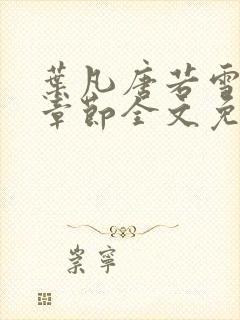 葉凡唐若雪
章節全文免
崇寧